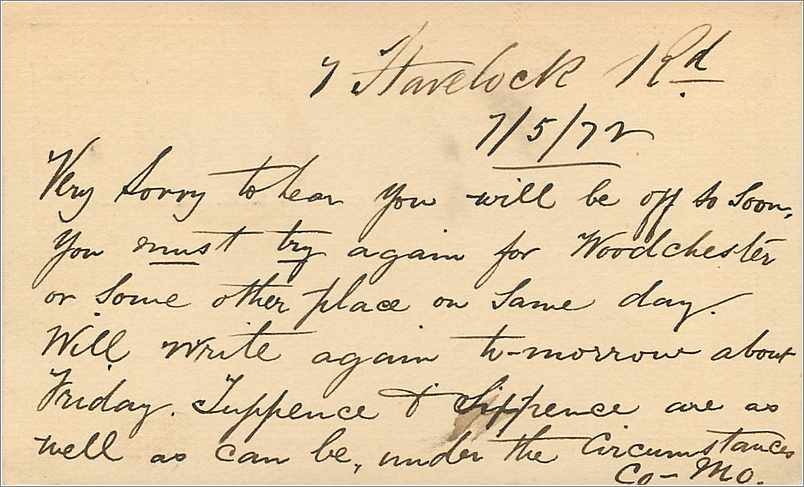 7 Havelock Rd.
7/5/72
Very Sorry to hear you will be off so soon.
You must try again for Woodchester
or some other place on same day.
Will write again to-morrow about
Friday. Tuppence & Sippence are as
well as can be, under the Circumstances
Co-Mo.